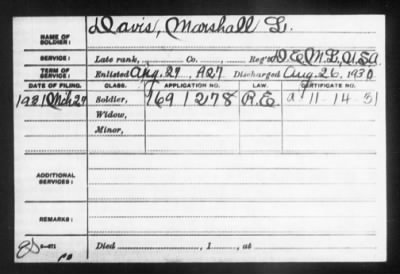 NAME OF SOLDIER: Davis, Marshall G.
SERVICE: Late rank, Co. , Reg't D.E.M.L., U.S.A.
TERM OF SERVICE: Enlisted Aug. 27, 1927 Discharged Aug. 26, 1930
DATE OF FILING. CLASS. APPLICATION NO. LAW. CERTIFICATE NO.
1931 Mch 27 Soldier, 1691278 R.E. a 11-14-31
Widow,
Minor,
ADDITIONAL SERVICES:
REMARKS:
Died , 1 , at